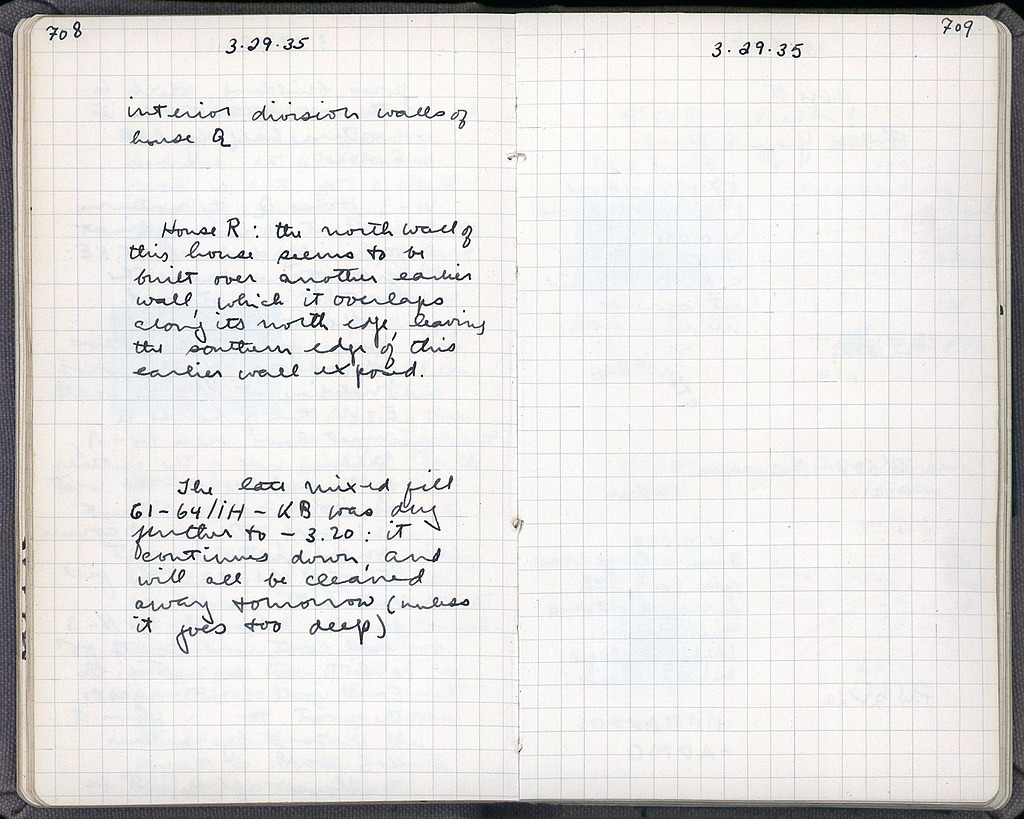 708
3.29.35
interior division walls of
house Q
House R : the north wall of
this house seems to be
built over another earlier
wall, which it overlaps
along its north edge, leaving
the southern edge of this
earlier wall exposed.
The late mixed fill
61-64/IH-KB was dug
further to - 3.20 : it
continues down, and
will all be cleaned
away tomorrow (unless
it goes too deep)
709
3.29.35